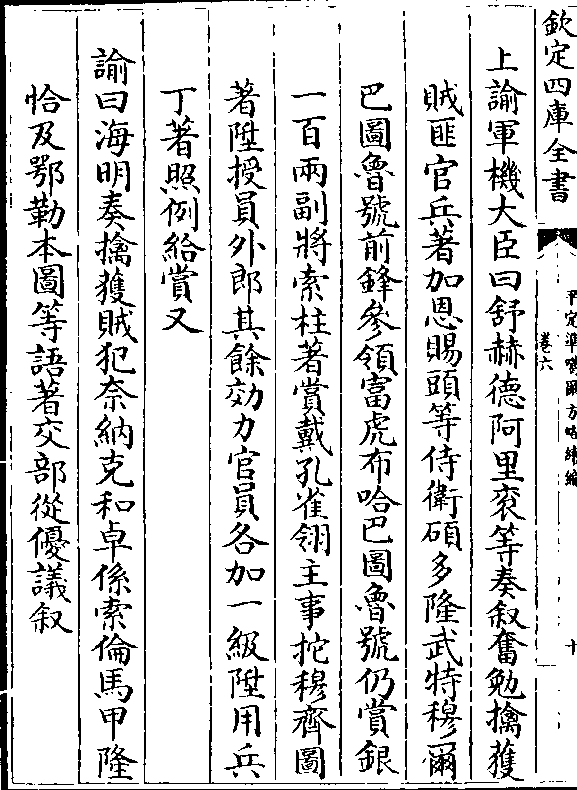 欽定四庫全書
平定準噶爾方略續編
卷六
十
上諭軍機大臣曰舒赫德阿里衮等奏叙奮勉擒獲
賊匪官兵著加恩賜頭等侍衛碩多隆武特穆爾
巴圖魯號前鋒參領富虎布哈巴圖魯號仍賞銀
一百兩副將索柱著賞戴孔雀翎主事扥穆齊圖
著陞授員外郎其餘効力官員各加一級陞用兵
丁著照例給賞又
諭曰海明奏擒獲賊犯奈納克和卓係索倫馬甲隆
恰及鄂勒本圖等語著交部從優議叙